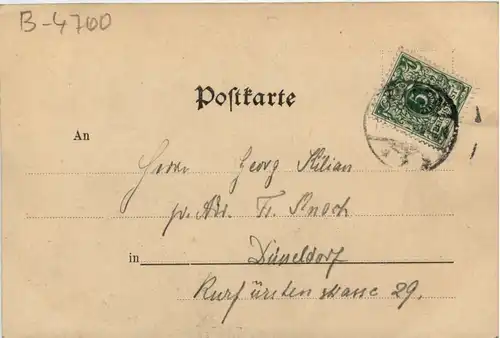 B-4700
Postkarte
An
Herrn Georg Kilian
pr. Adr. Fr. Knoch
in Düsseldorf
Kurfürstenstrasse 29.